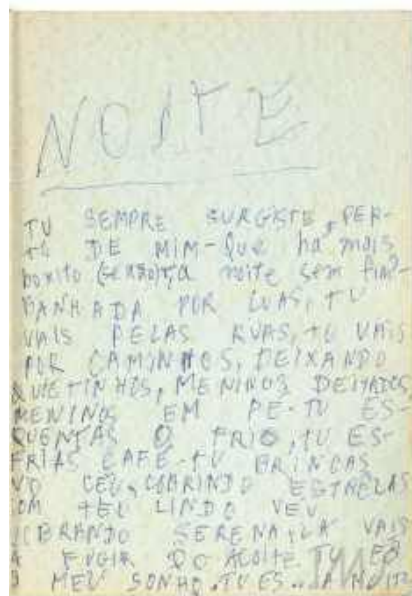 NOITE
TU SEMPRE SURGISTE, PER-
TO DE MIM-QUE ha mais
bonito (senão) a noite sem fim?-
BANHADA POR LUAS, TU
VAIS PELAS RUAS, TU VAIS
POR CAMINHOS, DEIXANDO
QUIETINHOS, MENINOS DEITADOS,
MENINOS EM PE-TU ES-
QUENTAS O FRIO, TU ES-
FRIAS CAFE-TU BRINCAS
NO CEU, COBRINDO ESTRELAS
COM TEU LINDO VEU
SERENA, LA VAIS
A FUGIR DO AÇOITE TU ES
O MEU SONHO. TU ES... A NOITE